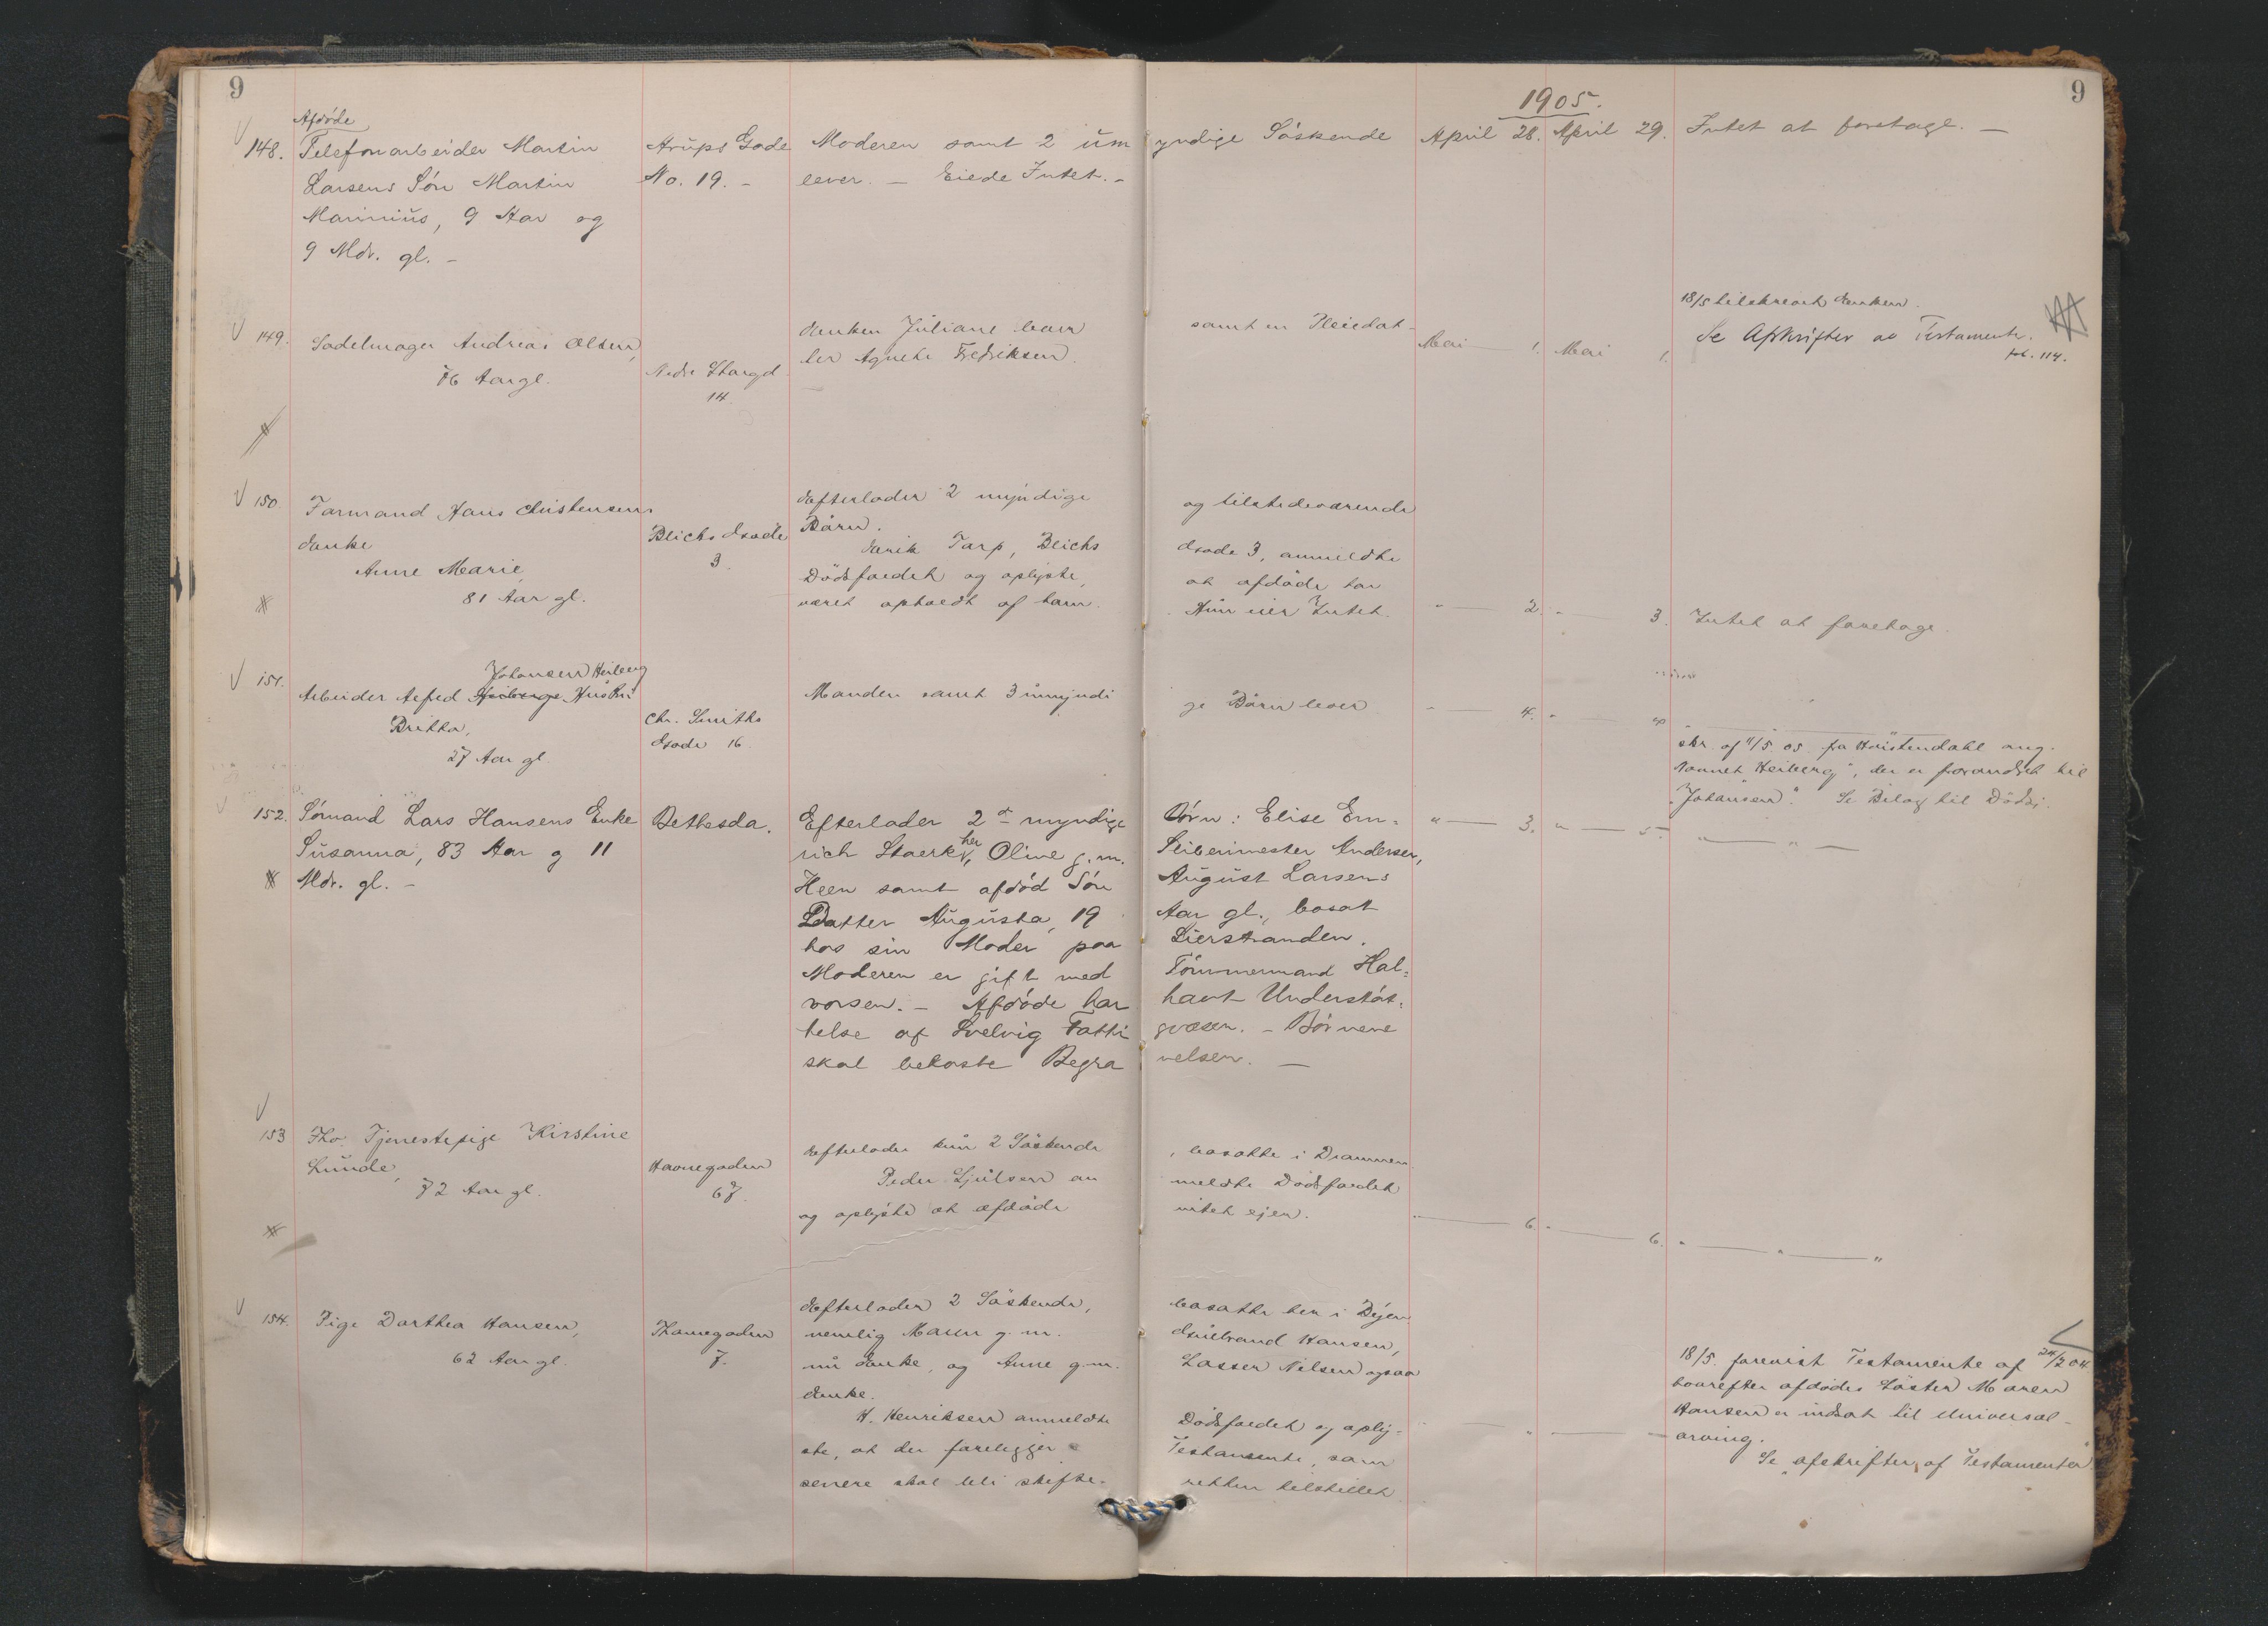 9
9
1905.
Afdöde
148. Telefonarbeider Martin
Larsens Sön Martin
Marinius, 9 Aar og
9 Mdr. gl. -
Arups Gade
No. 19. -
Moderen samt 2 um yndige Söskende
lever. - Eiede Intet. -
April 28. April 29. Intet at foretage. -
149. Sadelmager Andreas Olsen,
76 Aar gl.
Nedre Storgd.
14.
Enken Juliane lever samt en Pleiedat-
ter Agnethe Fredriksen.
Mai 1. Mai 1.
18/5 Enken.
Se Afskrifter av Testamente.
fol. 114.
150. Formand Hans Christensens
Enke
Anne Marie,
81 Aar gl.
Blichs Gade
3.
Efterlader 2 myndige og tilstedeværende
Börn.
Erik Tarp, Blichs Gade 3, anmeldte
Dödsfaldet og oplyste, at afdöde har
været opholdt af ham. Hun eier Intet.
" 2. " 3. Intet at foretage.
151. Johansen Heiberg
Arbeider Alfred Heibergs Hustru
Britha,
27 Aar gl.
Chr. Smiths
Gade 16.
Manden samt 3 umyndi ge Börn lever
" 4. "
Skr. af 11/5 05 fra ang.
Navnet "Heiberg", der er forandret til
"Johansen". Se Bilag til Dödsj.
152. Sömand Lars Hansens Enke
Susanna, 83 Aar og 11
Mdr. gl. -
Bethesda.
Efterlader 2de myndige Börn: Elise Em=
rich Staerk, her Oline g. m. Slibermester Andersen,
Heen samt afdöd Sön August Larsens
Datter Augusta, 19 Aar gl., bosat
hos sin Moder paa Lierstranden.
Moderen er gift med Tömmermand Hal=
vorsen. - Afdöde har havt Understöt=
telse af Svelvig Fatti gvæsen. - Börnene
skal bekoste Begra velsen. -
" 3. " 5. " "
153 Fhv. Tjenestepige Kirstine
Lunde,
72 Aar gl.
Havnegaden
67.
Efterlader kun 2 Söskende, bosatte i Drammen
Peder Gjulsen an meldte Dödsfaldet
og oplyste at afdöde intet ejer.
" 6. " 6. " " "
154. Pige Dorthea Hansen,
62 Aar gl.
Thornegaden
7.
Efterlader 2 Söskende, bosatte her i Byen
nemlig Maren g. m. Gulbrand Hansen,
nu Enke, og Anne g. m. Lasser Nilsen ogsaa
Enke.
H. Henriksen anmeldte Dödsfaldet og oply=
ste, at der foreligger Testamente, som
senere skal bli skifte- retten tilstillet
18/5. forevist Testamente af 24/2 04.
hvorefter afdödes Söster Maren
Hansen er indsat til Universal-
arving.
Se "afskrifter af Testamenter"